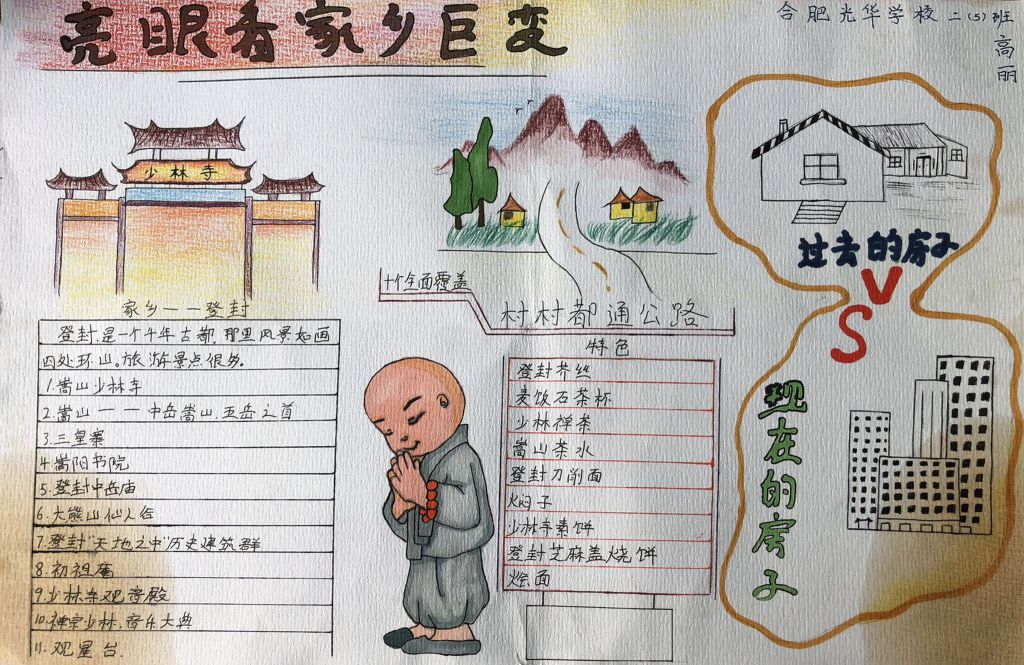 亮眼看家乡巨变
合肥光华学校二(5)班
高丽
少林寺
家乡——登封
登封,是一个千年古都,那里风景如画
四处环山。旅游景点很多。
1.嵩山少林寺
2.嵩山——中岳嵩山,五岳之首
3.三皇寨
4.嵩阳书院
5.登封中岳庙
6.大熊山仙人谷
7.登封"天地之中"历史建筑群
8.初祖庵
9.少林寺观音殿
10.禅宗少林.音乐大典
11.观星台.
十个全面覆盖
村村都通公路
特色
登封芥丝
麦饭石茶杯
少林禅茶
嵩山茶水
登封刀削面
焖子
少林寺素饼
登封芝麻盖烧饼
烩面
过去的房子
VS
现在的房子